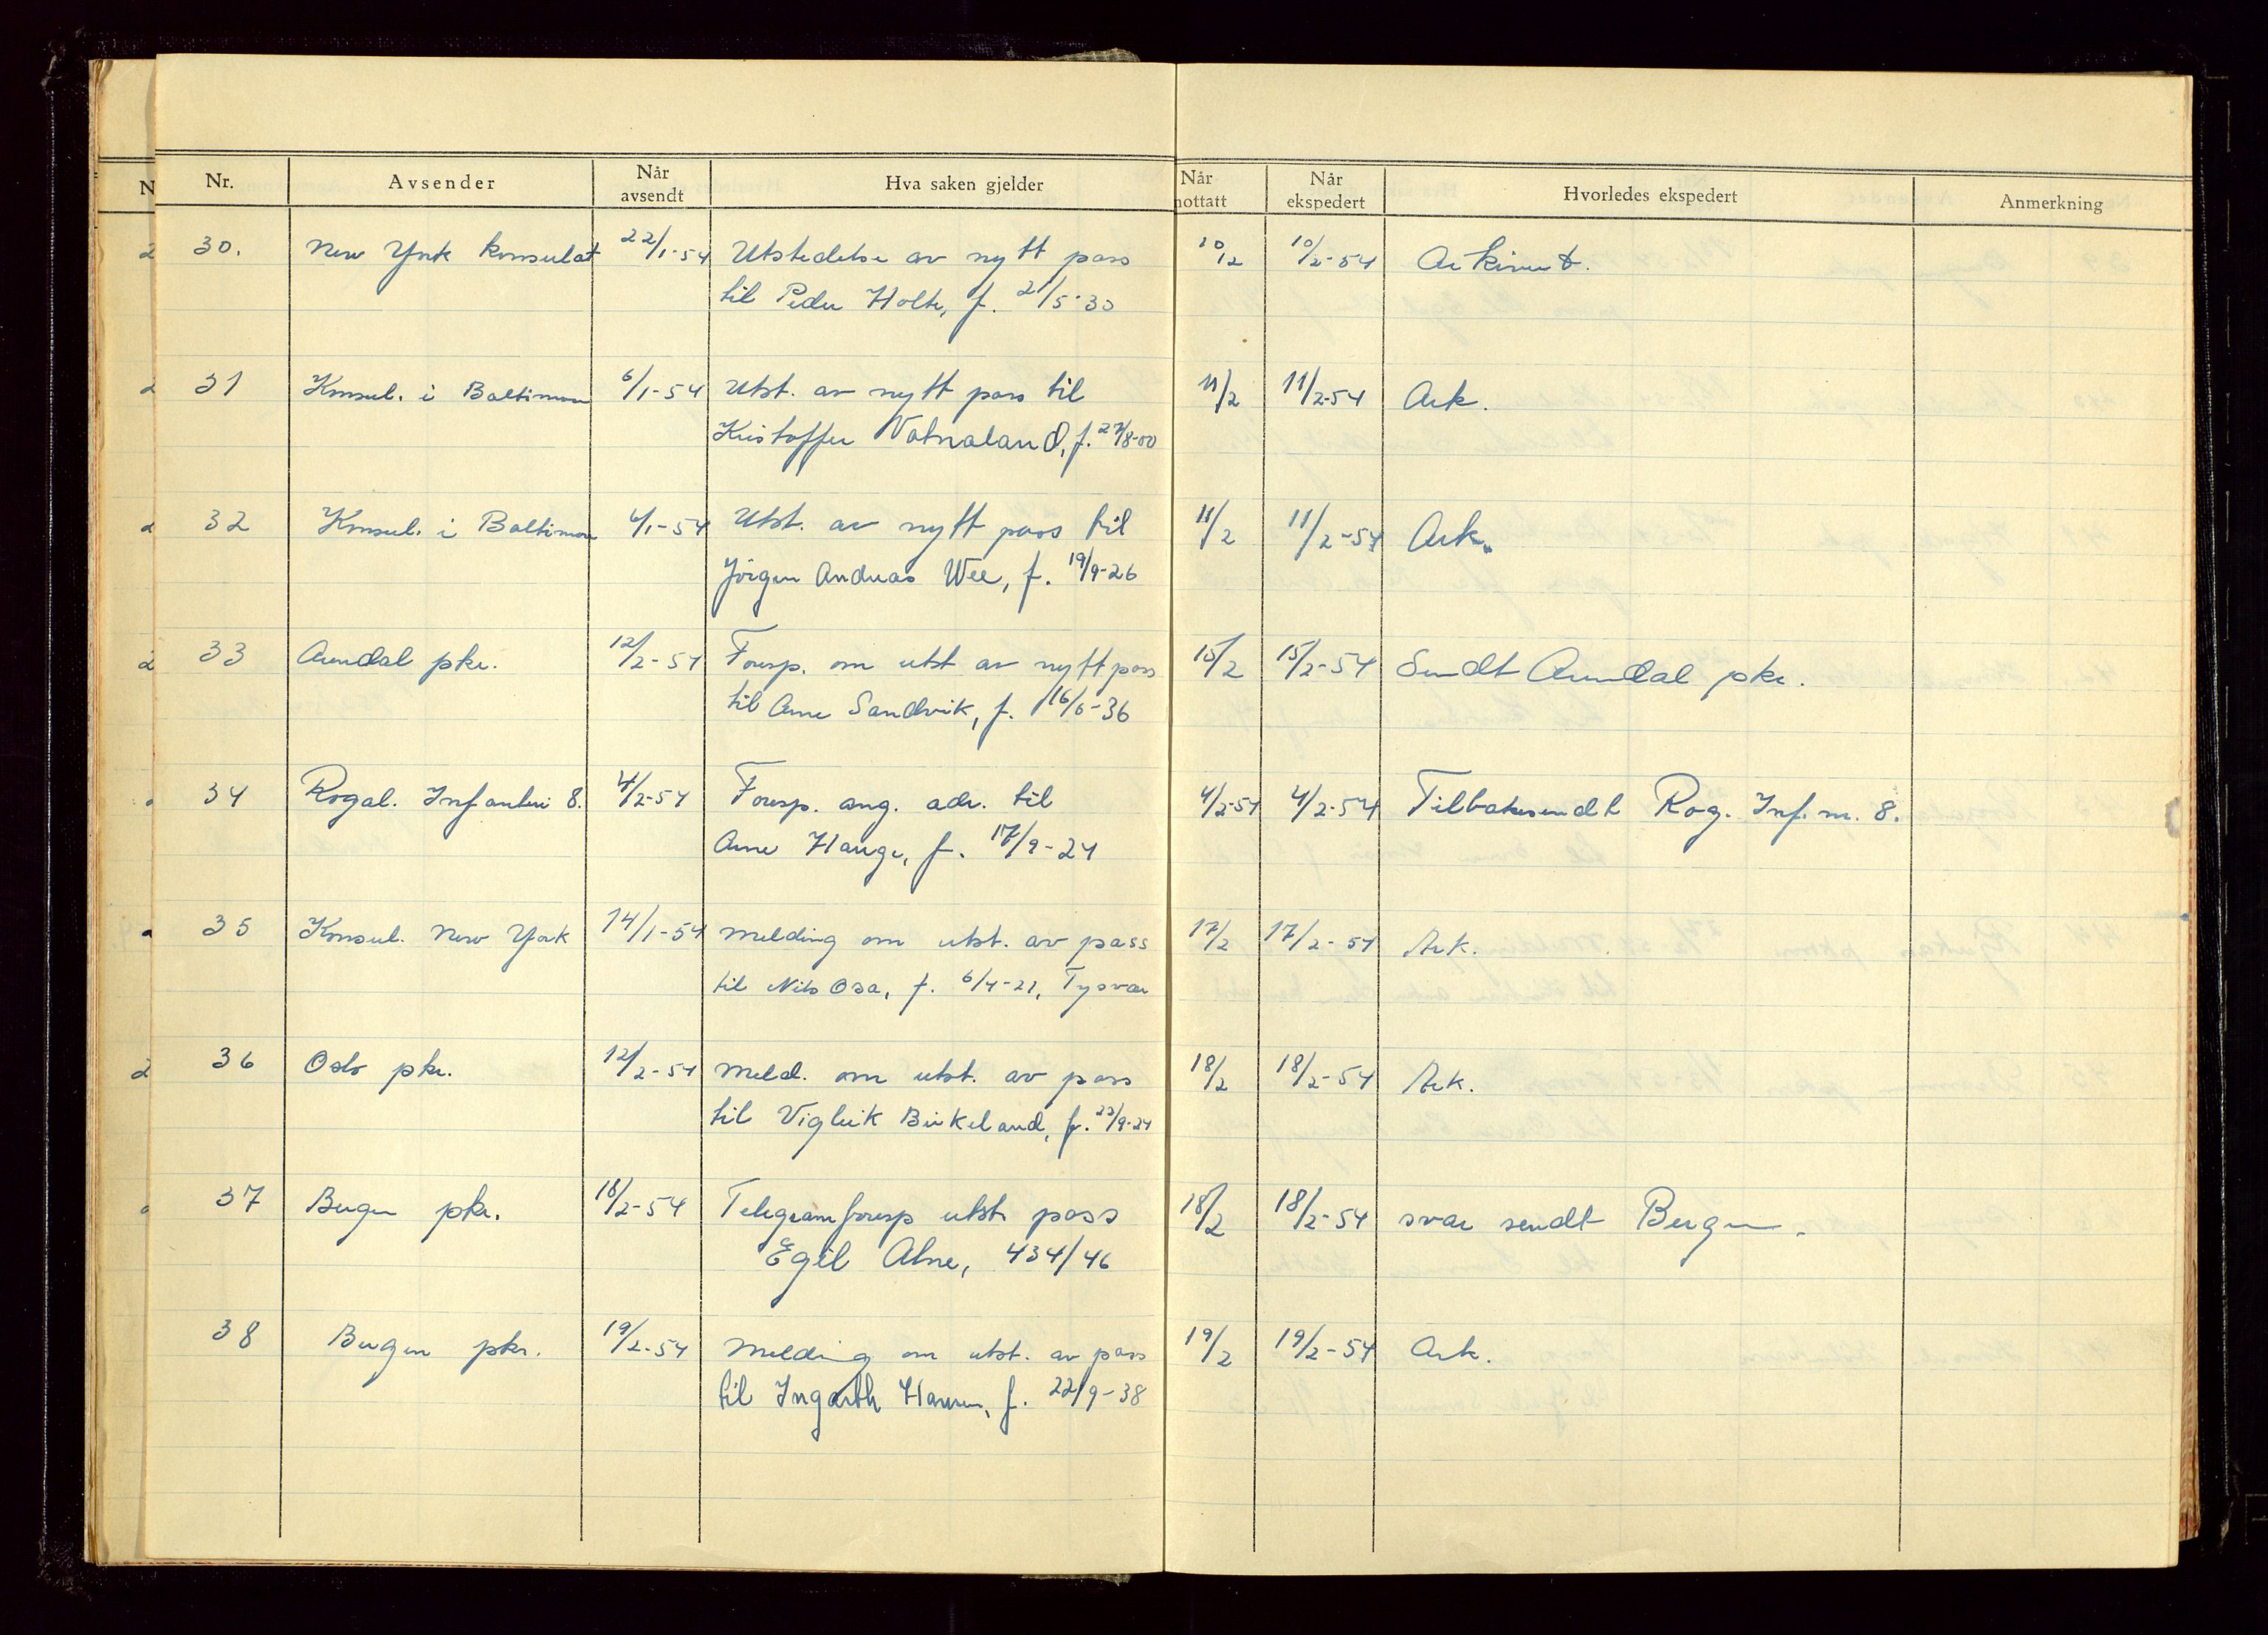 Nr. Avsender Når avsendt Hva saken gjelder Når mottatt Når ekspedert Hvorledes ekspedert Anmerkning
30. New York konsulat 22/1-54 Utstedelse av nytt pass 10/2 10/2-54 Arkivert.
til Peder Holte, f. 2/5-30
31 Konsul. i Baltimore 6/1-54 Utst. av nytt pass til 11/2 11/2-54 Ark.
Kristoffer Vatnaland, f. 27/8-00
32 Konsul. i Baltimore 6/1-54 Utst. av nytt pass til 11/2 11/2-54 Ark.
Jörgen Andreas Wee, f. 19/9-26
33 Arendal pkr. 12/2-54 Foresp. om utst av nytt pass 15/2 15/2-54 Sendt Arendal pkr.
til Arne Sandvik, f. 16/6-36
34 Rogal. Infanteri 8. 4/2-54 Foresp. ang. adr. til 4/2-54 4/2-54 Tilbakesendt Rog. Inf. nr. 8.
Arne Hauge, f. 17/9-24
35 Konsul. New York 14/1-54 Melding om utst. av pass 17/2 17/2-54 Ark.
til Nils Osa, f. 6/4-21, Tysvær
36 Oslo pkr. 12/2-54 Meld. om utst. av pass 18/2 18/2-54 Ark.
til Vigleik Birkeland, f. 22/9-24
37 Bergen pkr. 18/2-54 Telegramforesp utst. pass 18/2 18/2-54 svar sendt Bergen.
Egil Alne, 434/46
38 Bergen pkr. 19/2-54 Melding om utst. av pass 19/2 19/2-54 Ark.
til Ingarth Hansen, f. 22/9-38